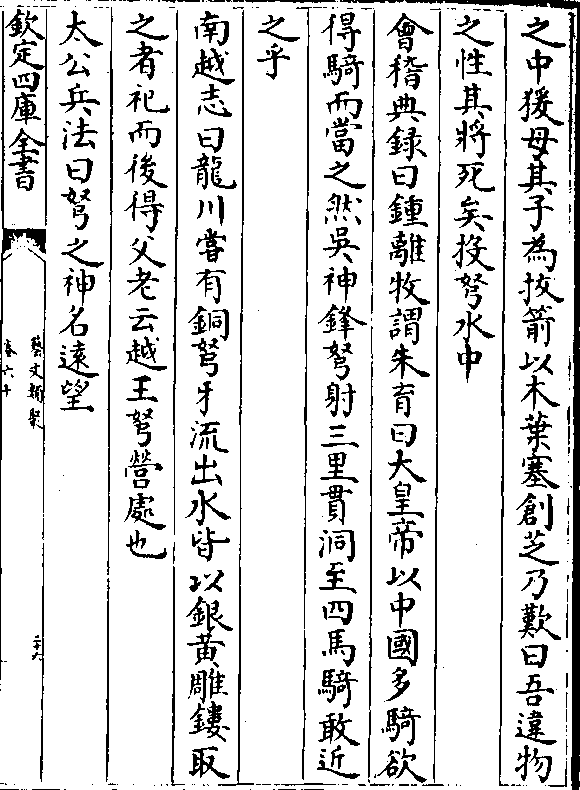 之中猨母其子為拔箭以木葉塞創芝乃歎曰吾違物
之性其將死矣投弩水中
會稽典録曰鍾離牧謂朱育曰大皇帝以中國多騎欲
得騎而當之然吳神鋒弩射三里貫洞至四馬騎敢近
之乎
南越志曰龍川嘗有銅弩牙流出水皆以銀黃雕鏤取
之者祀而後得父老云越王弩營處也
太公兵法曰弩之神名遠望
欽定四庫全書
藝文類聚
卷六十
二十六